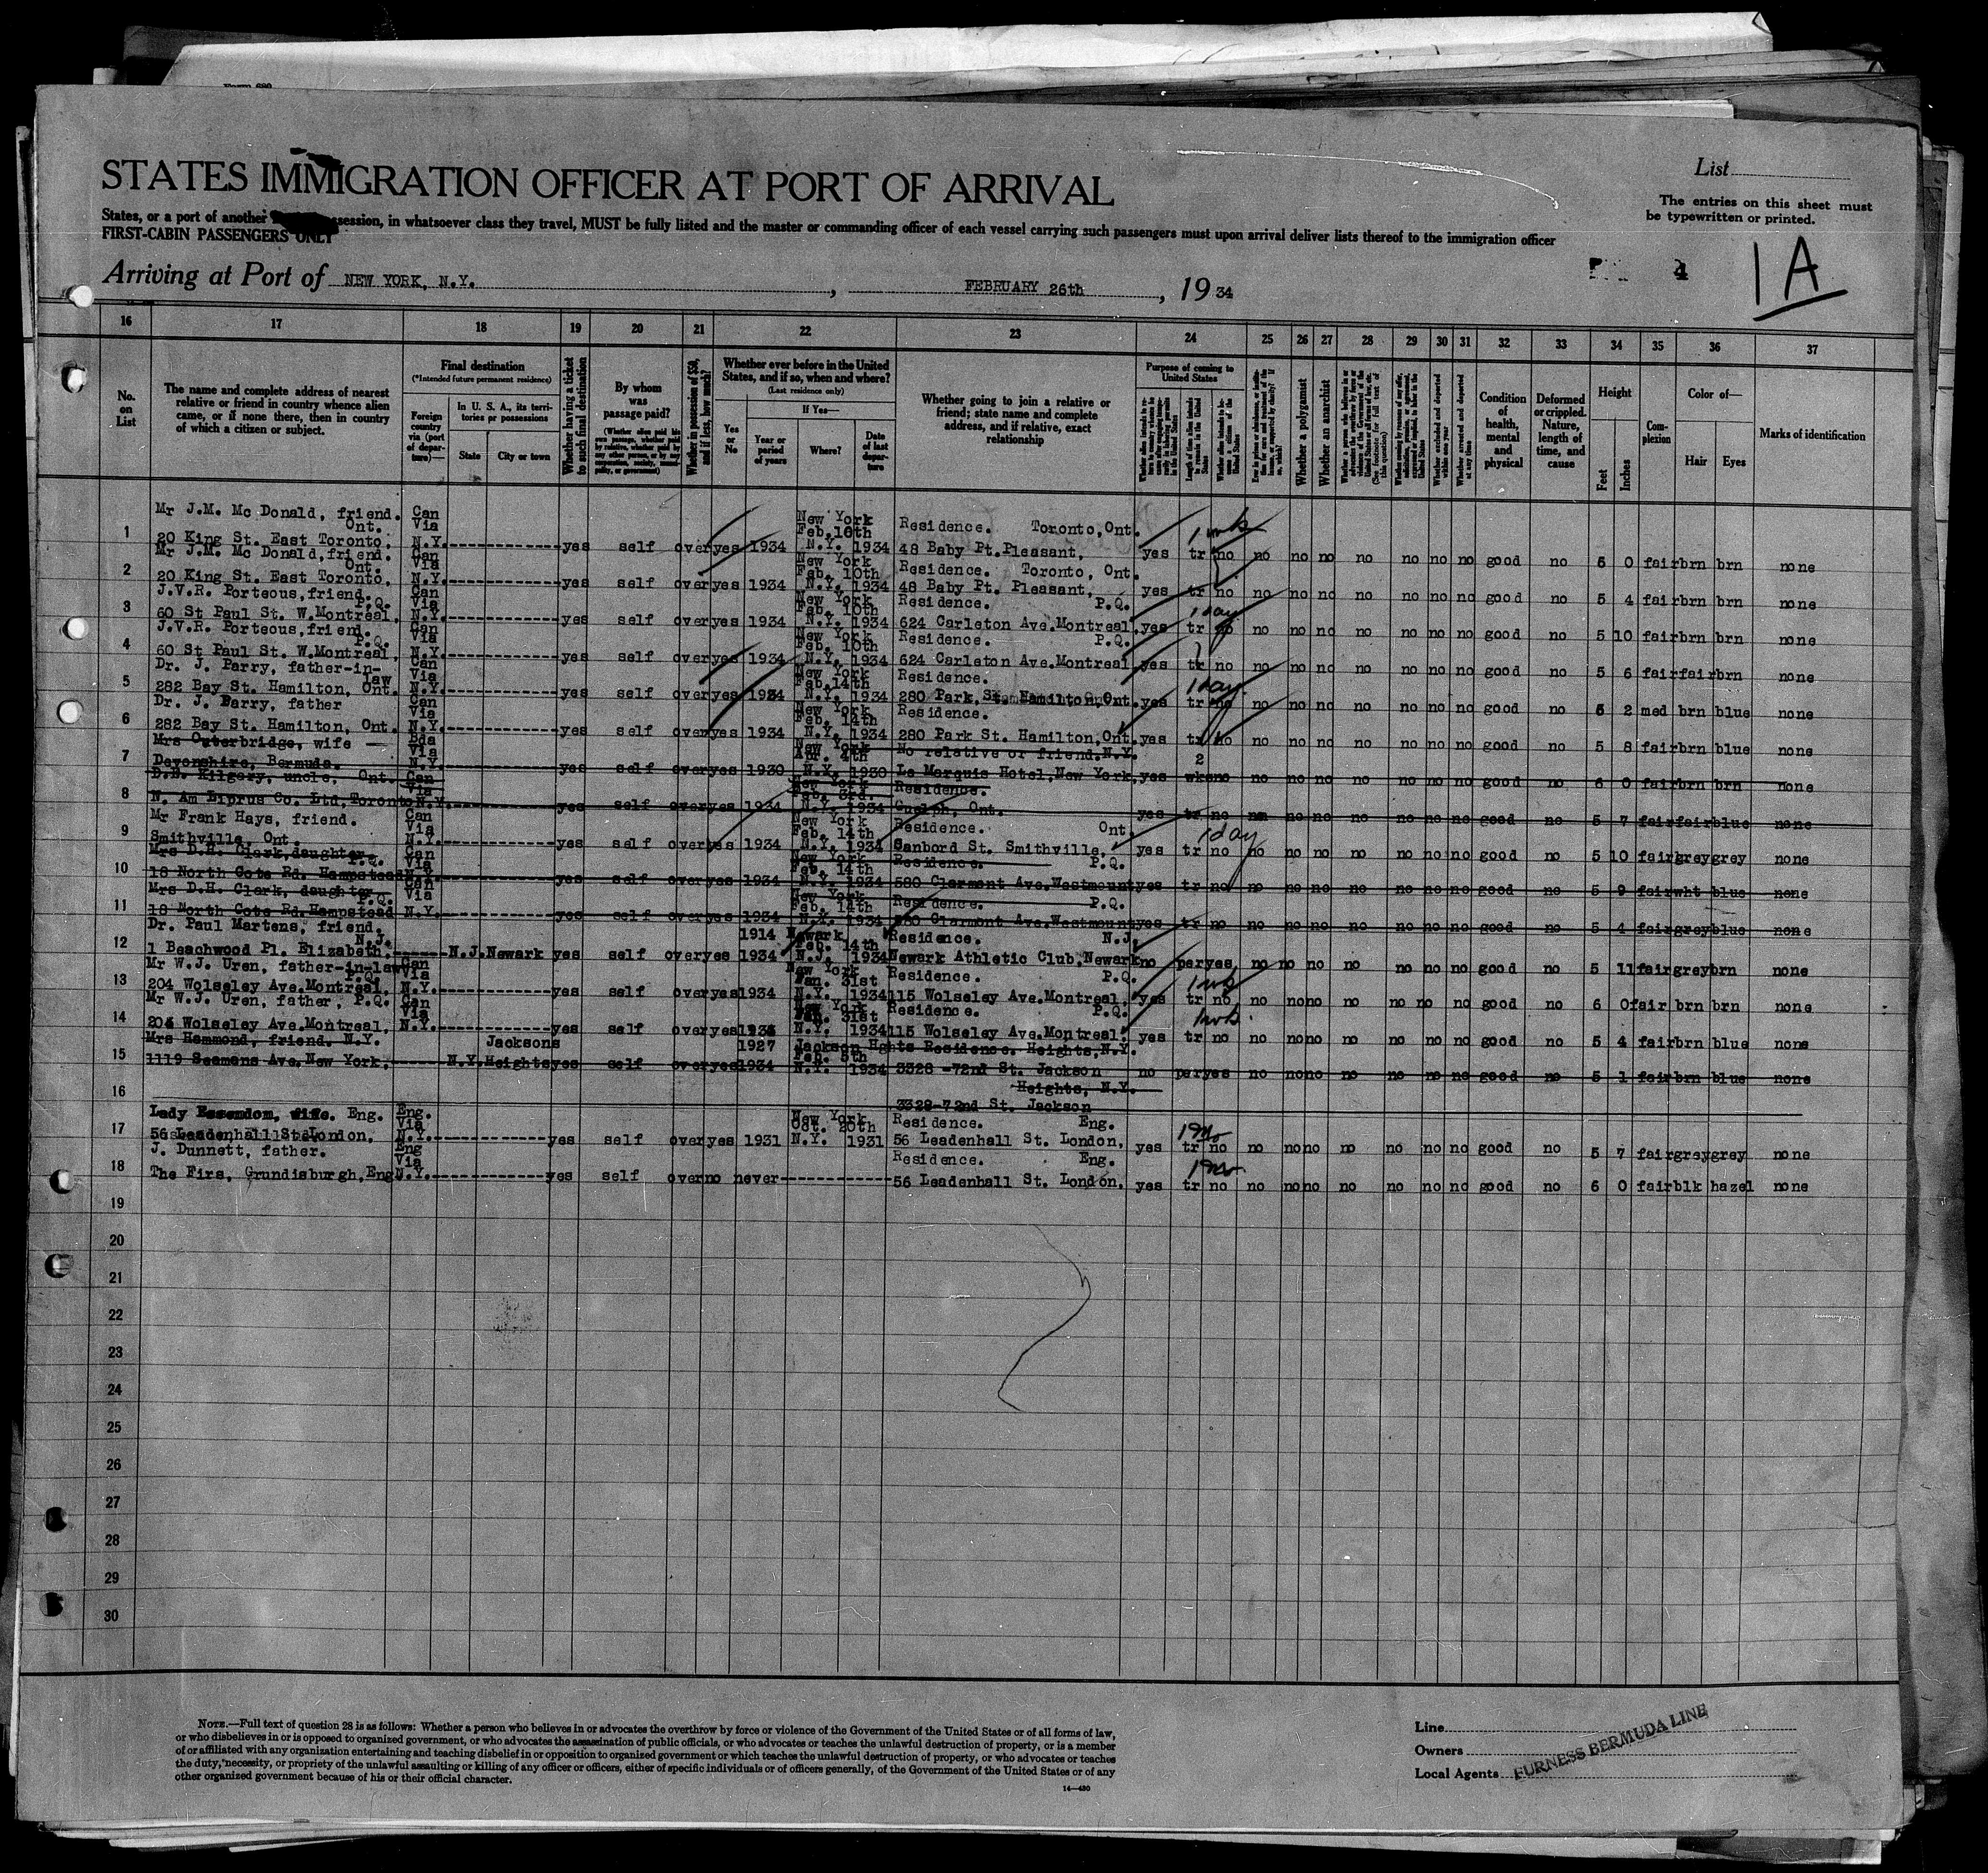 STATES IMMIGRATION OFFICER AT PORT OF ARRIVAL
List
The entries on this sheet must
be typewritten or printed.
States, or a port of another session, in whatsoever class they travel, MUST be fully listed and the master or commanding officer of each vessel carrying such passengers must upon arrival deliver lists thereof to the immigration officer
FIRST-CABIN PASSENGERS ONLY
1A
4
Arriving at Port of NEW YORK, N.Y. , FEBRUARY 26th , 19 34
16 17 18 19 20 21 22 23 24 25 26 27 28 29 30 31 32 33 34 35 36 37
No. on List
The name and complete address of nearest
relative or friend in country whence alien
came, or if none there, then in country
of which a citizen or subject.
Final destination
(*Intended future permanent residence)
Foreign country via (port of departure)—
In U. S. A., its territories or possessions
State
City or town
Whether having a ticket to such final destination
By whom was passage paid?
(Whether alien paid his own passage, whether paid by relative, whether paid by any other person, or by any corporation, society, municipality, or government)
Whether in possession of $50, and if less, how much?
Whether ever before in the United
States, and if so, when and where?
(Last residence only)
Yes or No
If Yes—
Year or period of years
Where?
Date of last departure
Whether going to join a relative or
friend; state name and complete
address, and if relative, exact
relationship
Purpose of coming to United States
Length of time alien intends to remain in the United States
Whether a polygamist
Whether an anarchist
Whether excluded and deported within one year
Whether arrested and deported at any time
Condition of health, mental and physical
Deformed or crippled. Nature, length of time, and cause
Height
Feet
Inches
Complexion
Color of—
Hair
Eyes
Marks of identification
1 Mr J.M. Mc Donald, friend. Ont. Can Via New York Feb. 10th Residence. Toronto, Ont. 1 wk
20 King St. East Toronto, N.Y. yes self over yes 1934 N.Y. 1934 48 Baby Pt. Pleasant, yes tr no no no no no no no no good no 5 0 fair brn brn none
2 Mr J.M. Mc Donald, friend. Ont. Can Via New York Feb. 10th Residence. Toronto, Ont.
20 King St. East Toronto, N.Y. yes self over yes 1934 N.Y. 1934 48 Baby Pt. Pleasant, yes tr no no no no no no no no good no 5 4 fair brn brn none
3 J.V.R. Porteous, friend. P.Q. Can Via New York Feb. 10th Residence. P.Q. 1 day
60 St Paul St. W. Montreal, N.Y. yes self over yes 1934 N.Y. 1934 624 Carleton Ave. Montreal, yes tr no no no no no no no no good no 5 10 fair brn brn none
4 J.V.R. Porteous, friend. P.Q. Can Via New York Feb. 10th Residence. P.Q.
60 St Paul St. W. Montreal, N.Y. yes self over yes 1934 N.Y. 1934 624 Carleton Ave. Montreal yes tr no no no no no no no no good no 5 6 fair fair brn none
5 Dr. J. Parry, father-in-law Can Via New York Feb. 14th Residence. 1 day
282 Bay St. Hamilton, Ont. N.Y. yes self over yes 1934 N.Y. 1934 280 Park St. Hamilton, Ont. yes tr no no no no no no no no good no 5 2 med brn blue none
6 Dr. J. Parry, father Can Via New York Feb. 14th Residence.
282 Bay St. Hamilton, Ont. N.Y. yes self over yes 1934 N.Y. 1934 280 Park St. Hamilton, Ont. yes tr no no no no no no no no good no 5 8 fair brn blue none
7 Mrs Outerbridge, wife Bda Via New York Apr. 4th No relative or friend. N.Y. 2
Devonshire, Bermuda. N.Y. yes self over yes 1930 N.Y. 1930 Le Marquis Hotel, New York, yes wks no no no no no no no no good no 6 0 fair brn brn none
8 D.B. Kilgory, uncle, Ont. Can Via New York Feb. 3rd. Residence.
N. Am Liprus Co. Ltd, Toronto N.Y. yes self over yes 1934 N.Y. 1934 Guelph, Ont. yes tr no no no no no no no good no 5 7 fair fair blue none
9 Mr Frank Hays, friend. Can Via New York Feb. 14th Residence. Ont. 1 day
Smithville, Ont. N.Y. yes self over yes 1934 N.Y. 1934 Canbord St. Smithville, yes tr no no no no no no no no good no 5 10 fair grey grey none
10 Mrs D.H. Clark, daughter P.Q. Can Via New York Feb. 14th Residence. P.Q.
18 North Cote Rd. Hampstead N.Y. yes self over yes 1934 N.Y. 1934 580 Clarmont Ave. Westmount yes tr no no no no no no no no good no 5 9 fair wht blue none
11 Mrs D.H. Clark, daughter P.Q. Can Via New York Feb. 14th Residence. P.Q.
18 North Cote Rd. Hampstead N.Y. yes self over yes 1934 N.Y. 1934 580 Clarmont Ave. Westmount yes tr no no no no no no no no good no 5 4 fair grey blue none
12 Dr. Paul Martens, friend, N.J. 1914 Newark Feb. 14th Residence. N.J.
1 Beachwood Pl. Elizabeth, N.J. Newark yes self over yes 1934 N.J. 1934 Newark Athletic Club, Newark no per yes no no no no no no no good no 5 11 fair grey brn none
13 Mr W.J. Uren, father-in-law P.Q. Can Via New York Jan. 31st Residence. P.Q. 1 wk
204 Wolseley Ave. Montreal, N.Y. yes self over yes 1934 N.Y. 1934 115 Wolseley Ave. Montreal, yes tr no no no no no no no no good no 6 0 fair brn brn none
14 Mr W.J. Uren, father, P.Q. Can Via New York Jan. 31st Residence. P.Q. 1 wk.
204 Wolseley Ave. Montreal, N.Y. yes self over yes 1934 N.Y. 1934 115 Wolseley Ave. Montreal. yes tr no no no no no no no no good no 5 4 fair brn blue none
15 Mrs Hammond, friend. N.Y. Jacksons 1927 Jackson Hghts Feb. 5th Residence. Heights, N.Y.
1119 Seamens Ave. New York. N.Y. Heights yes self over yes 1934 N.Y. 1934 3328 -72nd St. Jackson no per yes no no no no no no no good no 5 1 fair brn blue none
16 Heights, N.Y.
3328-72nd St. Jackson
17 Lady Essendom, wife. Eng. Eng. Via New York Oct. 20th Residence. Eng. 1 Mo
56 Leadenhall St. London, N.Y. yes self over yes 1931 N.Y. 1931 56 Leadenhall St. London, yes tr no no no no no no no no good no 5 7 fair grey grey none
18 J. Dunnett, father. Eng Via Residence. Eng. 1 Mo.
The Firs, Grundisburgh, Eng N.Y. yes self over no never 56 Leadenhall St. London, yes tr no no no no no no no no good no 6 0 fair blk hazel none
19
20
21
22
23
24
25
26
27
28
29
30
NOTE.—Full text of question 28 is as follows: Whether a person who believes in or advocates the overthrow by force or violence of the Government of the United States or of all forms of law,
or who disbelieves in or is opposed to organized government, or who advocates the assassination of public officials, or who advocates or teaches the unlawful destruction of property, or is a member
of or affiliated with any organization entertaining and teaching disbelief in or opposition to organized government or which teaches the unlawful destruction of property, or who advocates or teaches
the duty, necessity, or propriety of the unlawful assaulting or killing of any officer or officers, either of specific individuals or of officers generally, of the Government of the United States or of any
other organized government because of his or their official character.
14—430
Line
Owners
Local Agents
FURNESS BERMUDA LINE